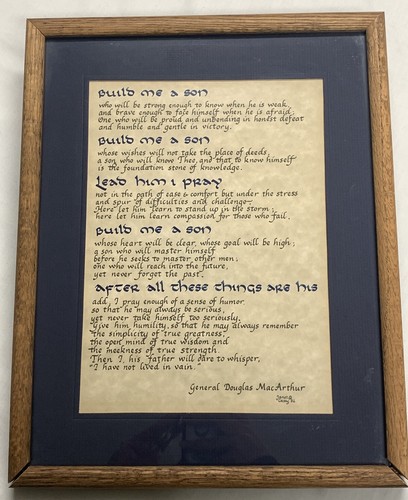 Build me a son
who will be strong enough to know when he is weak,
and brave enough to face himself when he is afraid.
One who will be proud and unbending in honest defeat
and humble and gentle in victory.
Build me a son
whose wishes will not take the place of deeds,
a son who will know Thee, and that to know himself
is the foundation stone of knowledge.
Lead him i pray
not in the path of ease & comfort but under the stress
and spur of difficulties and challenge.
Here let him learn to stand up in the storm;
here let him learn compassion for those who fail.
Build me a son
whose heart will be clear, whose goal will be high;
a son who will master himself
before he seeks to master other men;
one who will reach into the future,
yet never forget the past.
After all these things are his
add, I pray enough of a sense of humor
so that he may always be serious,
yet never take himself too seriously.
Give him humility, so that he may always remember
the simplicity of true greatness,
the open mind of true wisdom and
the meekness of true strength.
Then I, his father will dare to whisper,
"I have not lived in vain."
General Douglas MacArthur